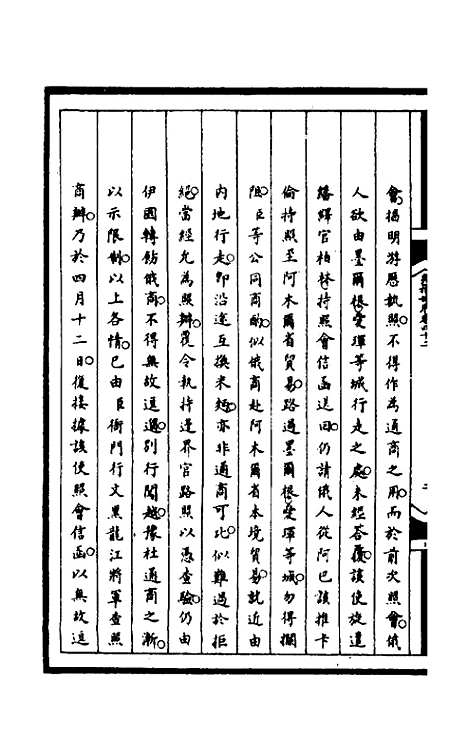 會揭明游歷執照不得作為通商之用而於前次照會俄
人欲由墨爾根愛琿等城行走之處未經荅覆該使旋遣
繙繹官柏林持照會信函送回仍請俄人從阿巴該推卡
倫持照至阿木爾省貿易路過墨爾根愛琿等城勿得攔
阻臣等公同商酌似俄商赴阿木爾省本境貿易就近由
內地行走卽沿途互換米麪亦非通商可比似難過於拒
絕當經允為照辦覆令執持邊界官路照以憑查驗仍由
伊國轉飭俄商不得無故逗遛別行闖越據社通商之漸
以示限制以上各情已由臣衙門行文黑龍江將軍查照
商辦乃於四月十二日復接據該使照會信函以無故逗